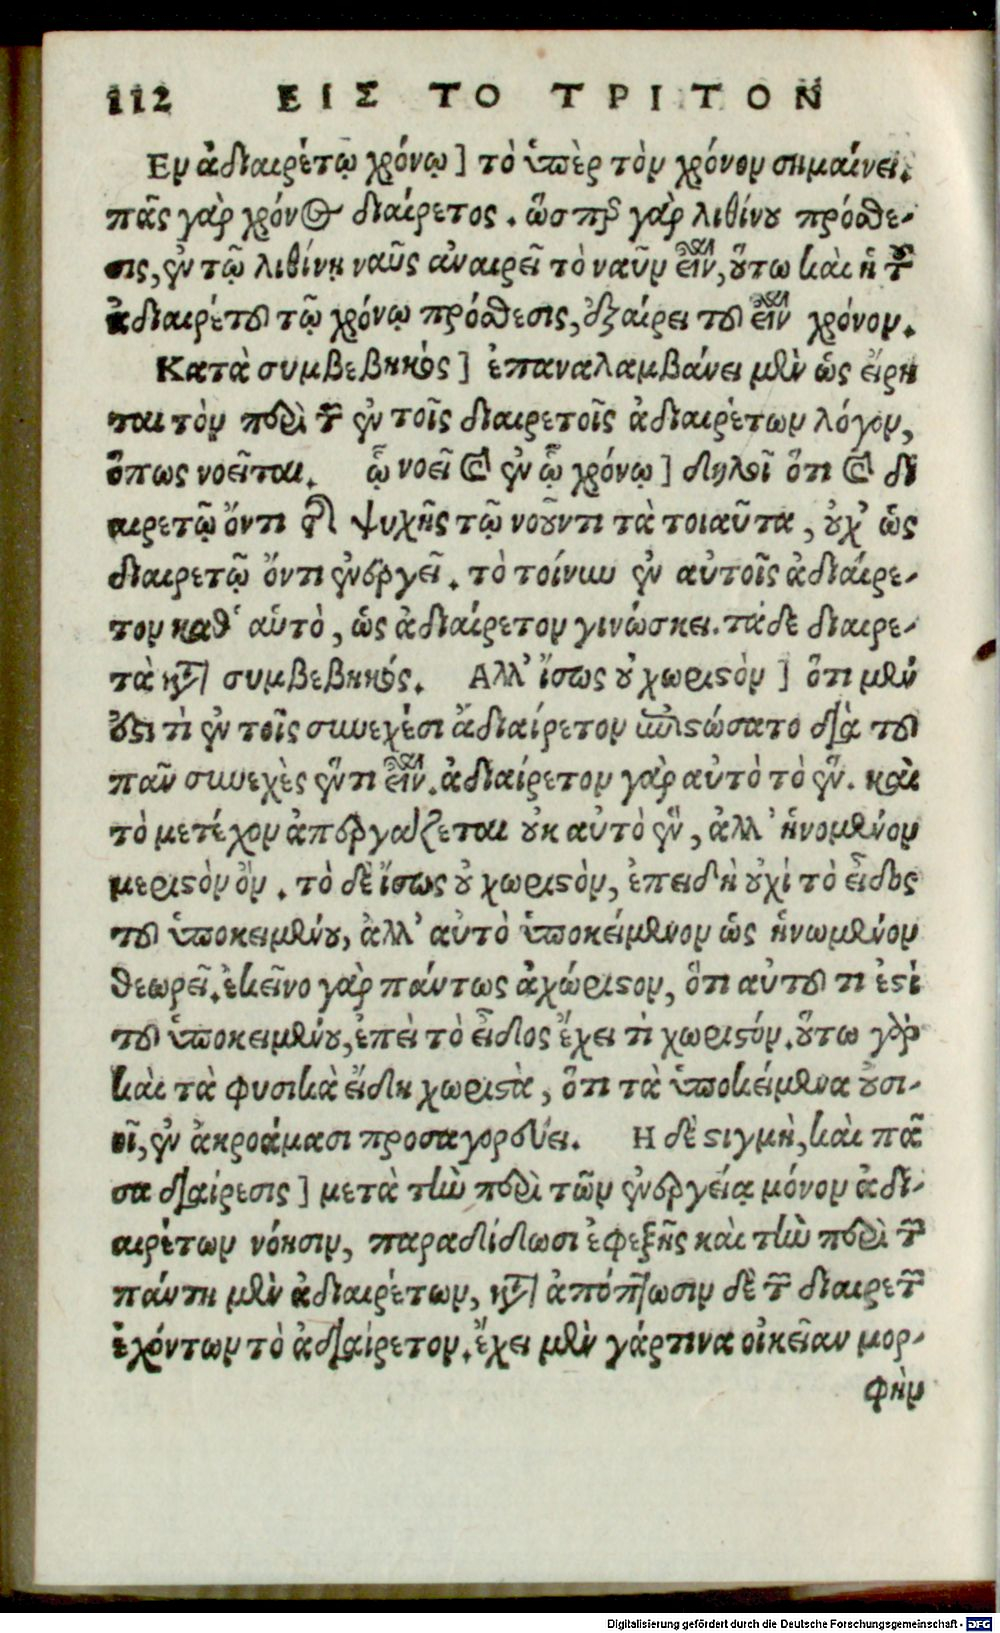 112 ΕΙΣ ΤΟ ΤΡΙΤΟΝ
Εν ἀδιαιρέτῳ χρόνῳ] τὸ ὑπὲρ τὸν χρόνον σημαίνει.
πᾶς γὰρ χρόνος διαίρετος. ὥσπερ γὰρ λιθίνου πρόσθε-
σις, ἐν τῷ λιθίνη ναῦς ἀναιρεῖ τὸ ναῦν εἶναι, οὕτω καὶ ἡ τοῦ
ἀδιαιρέτου τῷ χρόνῳ πρόσθεσις, ἐξαίρει τοῦ εἶναι χρόνον.
Κατὰ συμβεβηκός] ἐπαναλαμβάνει μὲν ὡς εἴρη
ται τὸν περὶ τῶν ἐν τοῖς διαιρετοῖς ἀδιαιρέτων λόγον,
ὅπως νοεῖται. ᾧ νοεῖ καὶ ἐν ᾧ χρόνῳ] δηλοῖ ὅτι καὶ δι
αιρετῷ ὄντι τῆς ψυχῆς τῷ νοοῦντι τὰ τοιαῦτα, οὐχ ὡς
διαιρετῷ ὄντι ἐνεργεῖ. τὸ τοίνυν ἐν αὐτοῖς ἀδιάιρε-
τον καθ' αὑτὸ, ὡς ἀδιαίρετον γινώσκει. τὰ δὲ διαιρε-
τὰ κατὰ συμβεβηκός. Αλλ' ἴσως οὐ χωριστὸν] ὅτι μὲν
ἔστι τὶ ἐν τοῖς συνεχέσι ἀδιαίρετον ἐπιστώσατο διὰ τοῦ
πᾶν συνεχὲς ἕν τι εἶναι. ἀδιαίρετον γὰρ αὐτὸ τὸ ἕν. καὶ
τὸ μετέχον ἀπεργάζεται οὐκ αὐτὸ ἓν, ἀλλ' ἡνομένον
μεριστὸν ὄν. τὸ δὲ ἴσως οὐ χωριστὸν, ἐπειδὴ οὐχὶ τὸ εἶδος
τοῦ ὑποκειμένου, ἀλλ' αὐτὸ ὑποκείμενον ὡς ἡνωμένον
θεωρεῖ. ἐκεῖνο γὰρ πάντως ἀχώριστον, ὅτι αὐτοῦ τι ἐστὶ
τοῦ ὑποκειμένου, ἐπεὶ τὸ εἶδος ἔχει τὶ χωριστόν. οὕτω γὰρ
καὶ τὰ φυσικὰ εἴδη χωριστὰ, ὅτι τὰ ὑποκείμενα οὐσι-
οῖ, ἐν ἀκροάμασι προσαγορεύει. Η δὲ στιγμὴ, καὶ πᾶ
σα διαίρεσις] μετὰ τὴν περὶ τῶν ἐνεργείᾳ μόνον ἀδι-
αιρέτων νόησιν, παραδίδωσι ἐφεξῆς καὶ τὴν περὶ τῶν
πάντη μὲν ἀδιαιρέτων, κατὰ ἀπόπτωσιν δὲ τῶν διαιρετῶν
ἐχόντων τὸ ἀδιαίρετον. ἔχει μὲν γάρ τινα οἰκεῖαν μορ-
φὴν
Digitalisierung gefördert durch die Deutsche Forschungsgemeinschaft - DFG